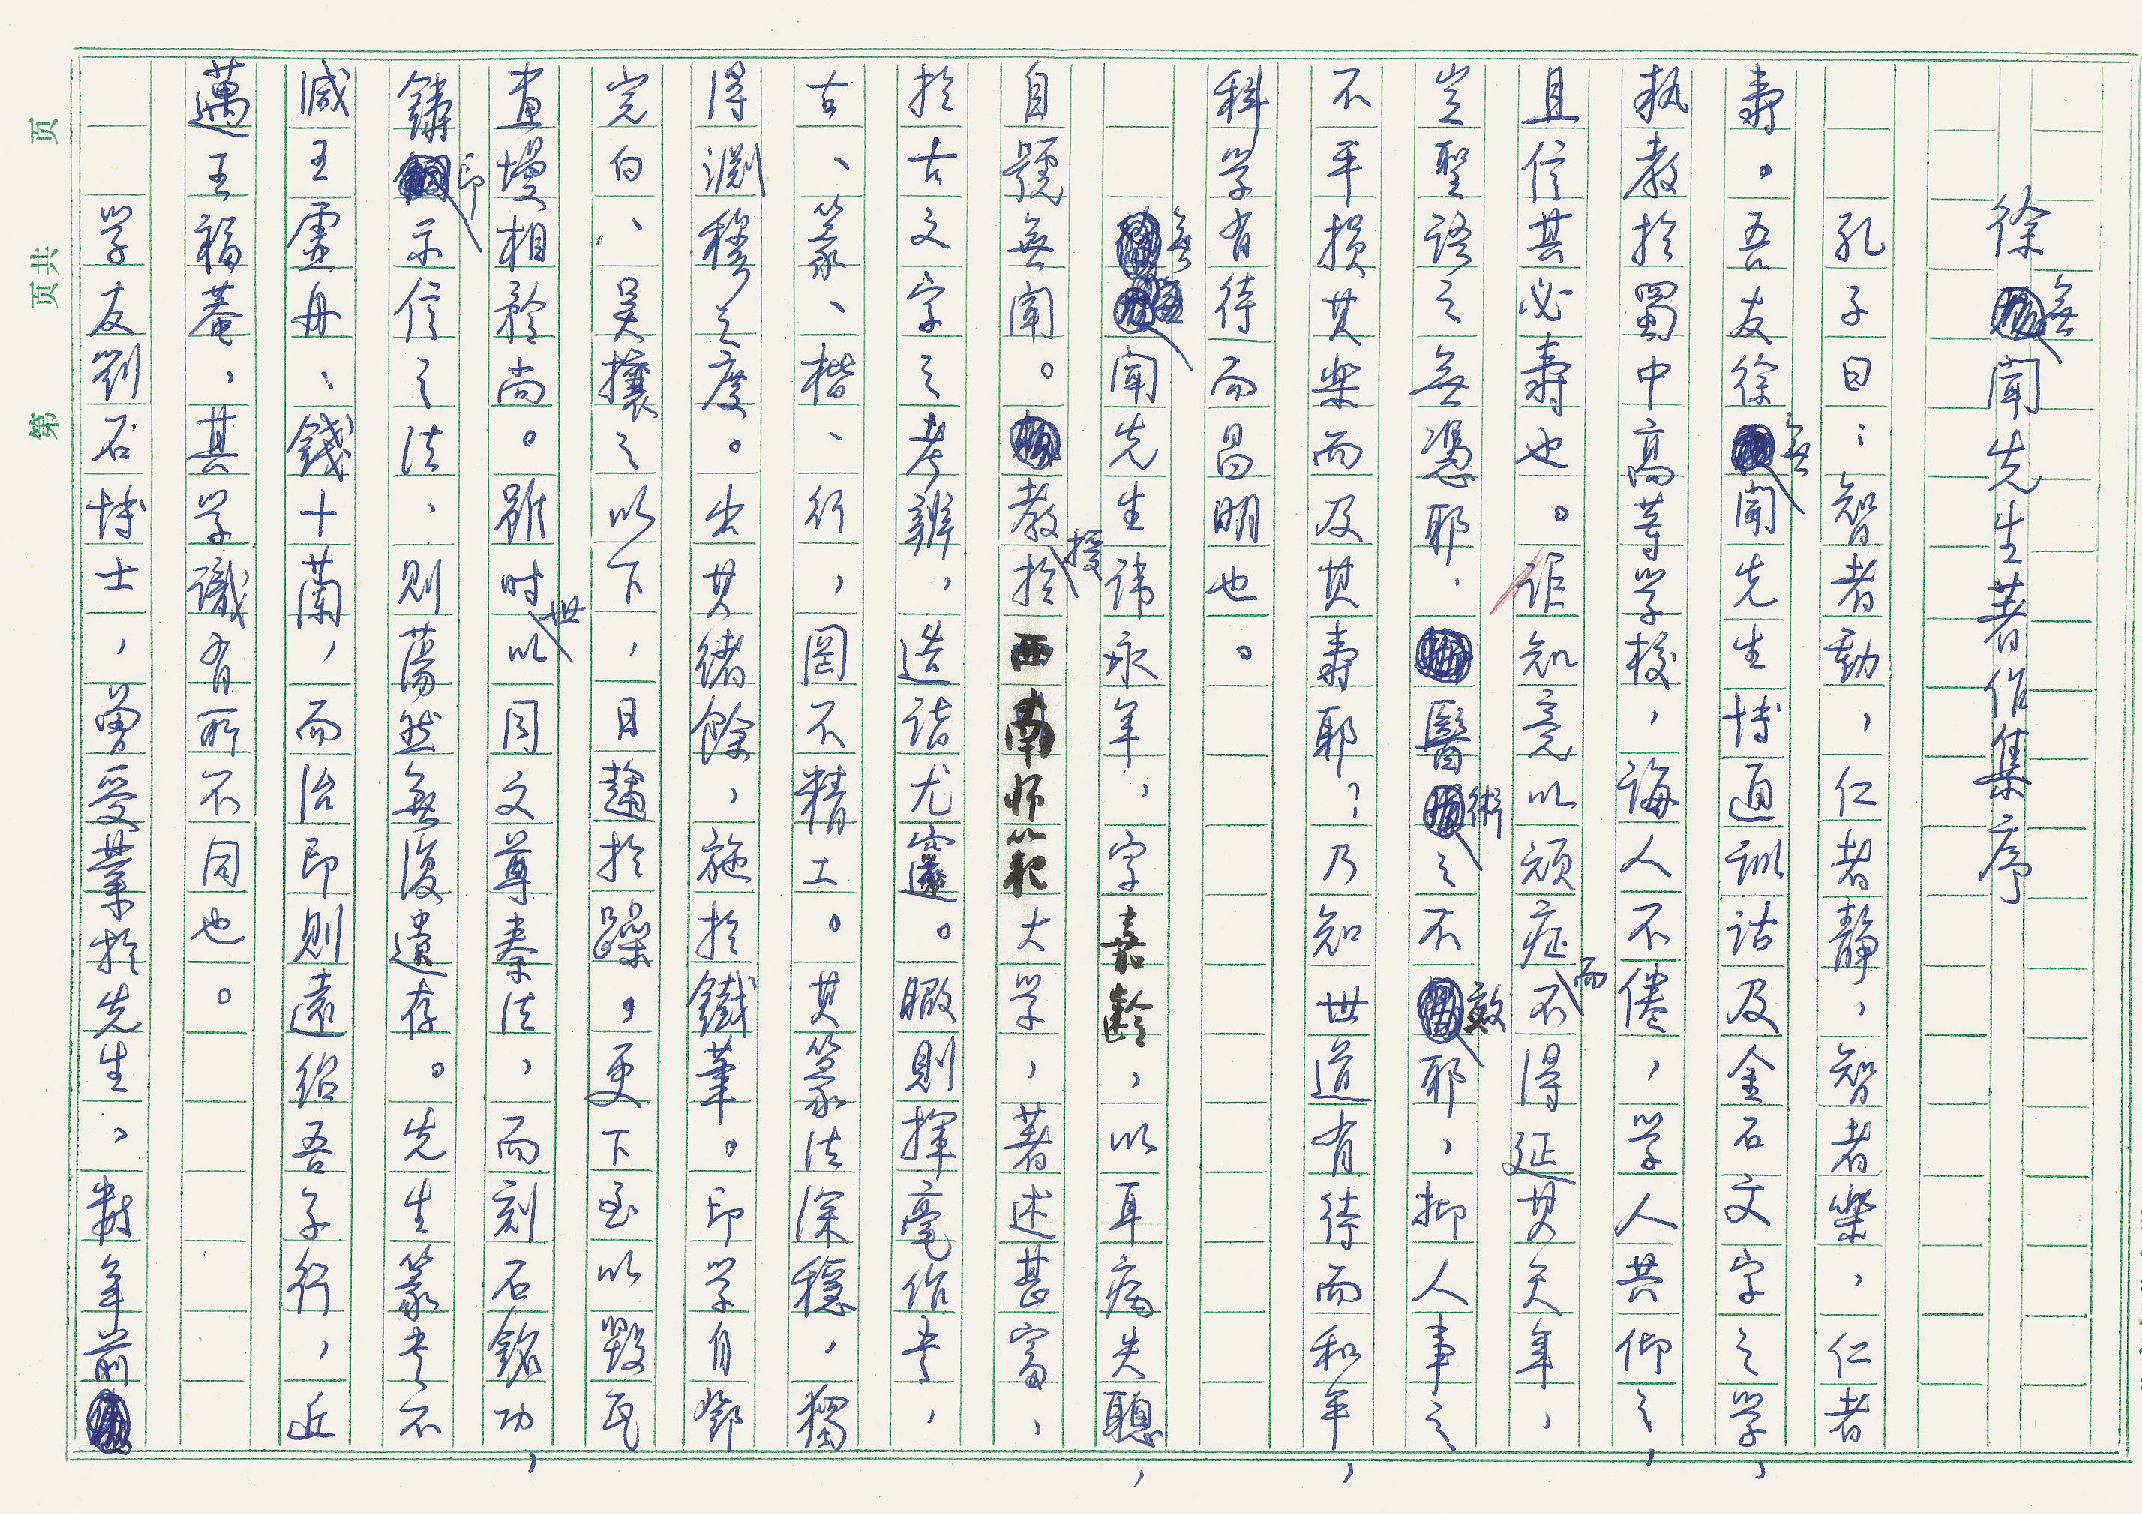 徐無聞先生著作集序
孔子曰：智者動，仁者靜，智者樂，仁者
壽。吾友徐無聞先生博通訓詁及金石文字之學，
執教於蜀中高等學校，誨人不倦，學人共仰之，
且信其必壽也。詎知竟以頑症而不得延其天年，
豈聖語之無憑耶，醫術之不效耶，抑人事之
不平損其樂而及其壽耶？乃知世道有待而和年，
科學有待而昌明也。
無聞先生諱永年，字嘉齡，以耳病失聰，
自號無聞。教授於西南师范大学，著述甚富，
於古文字之考辨，造詣尤邃。暇則揮毫作書，
古、篆、楷、行，罔不精工。其篆法深穩，獨
得淵穆之度。出其緒餘，施於鐵筆。印学自鄧
完白、吳攘之以下，日趨於躁，更下至以毀瓦
畫墁相矜尚。雖时世以同文尊秦法，而刻石銘功，
鐫印示信之法，則蕩然無復遺存。先生篆書不
減王虛舟、錢十蘭，而治印則遠紹吾子行，近
邁王福菴，其学識有所不同也。
学友劉石博士，曾受業於先生，數年前
页
页 共
第